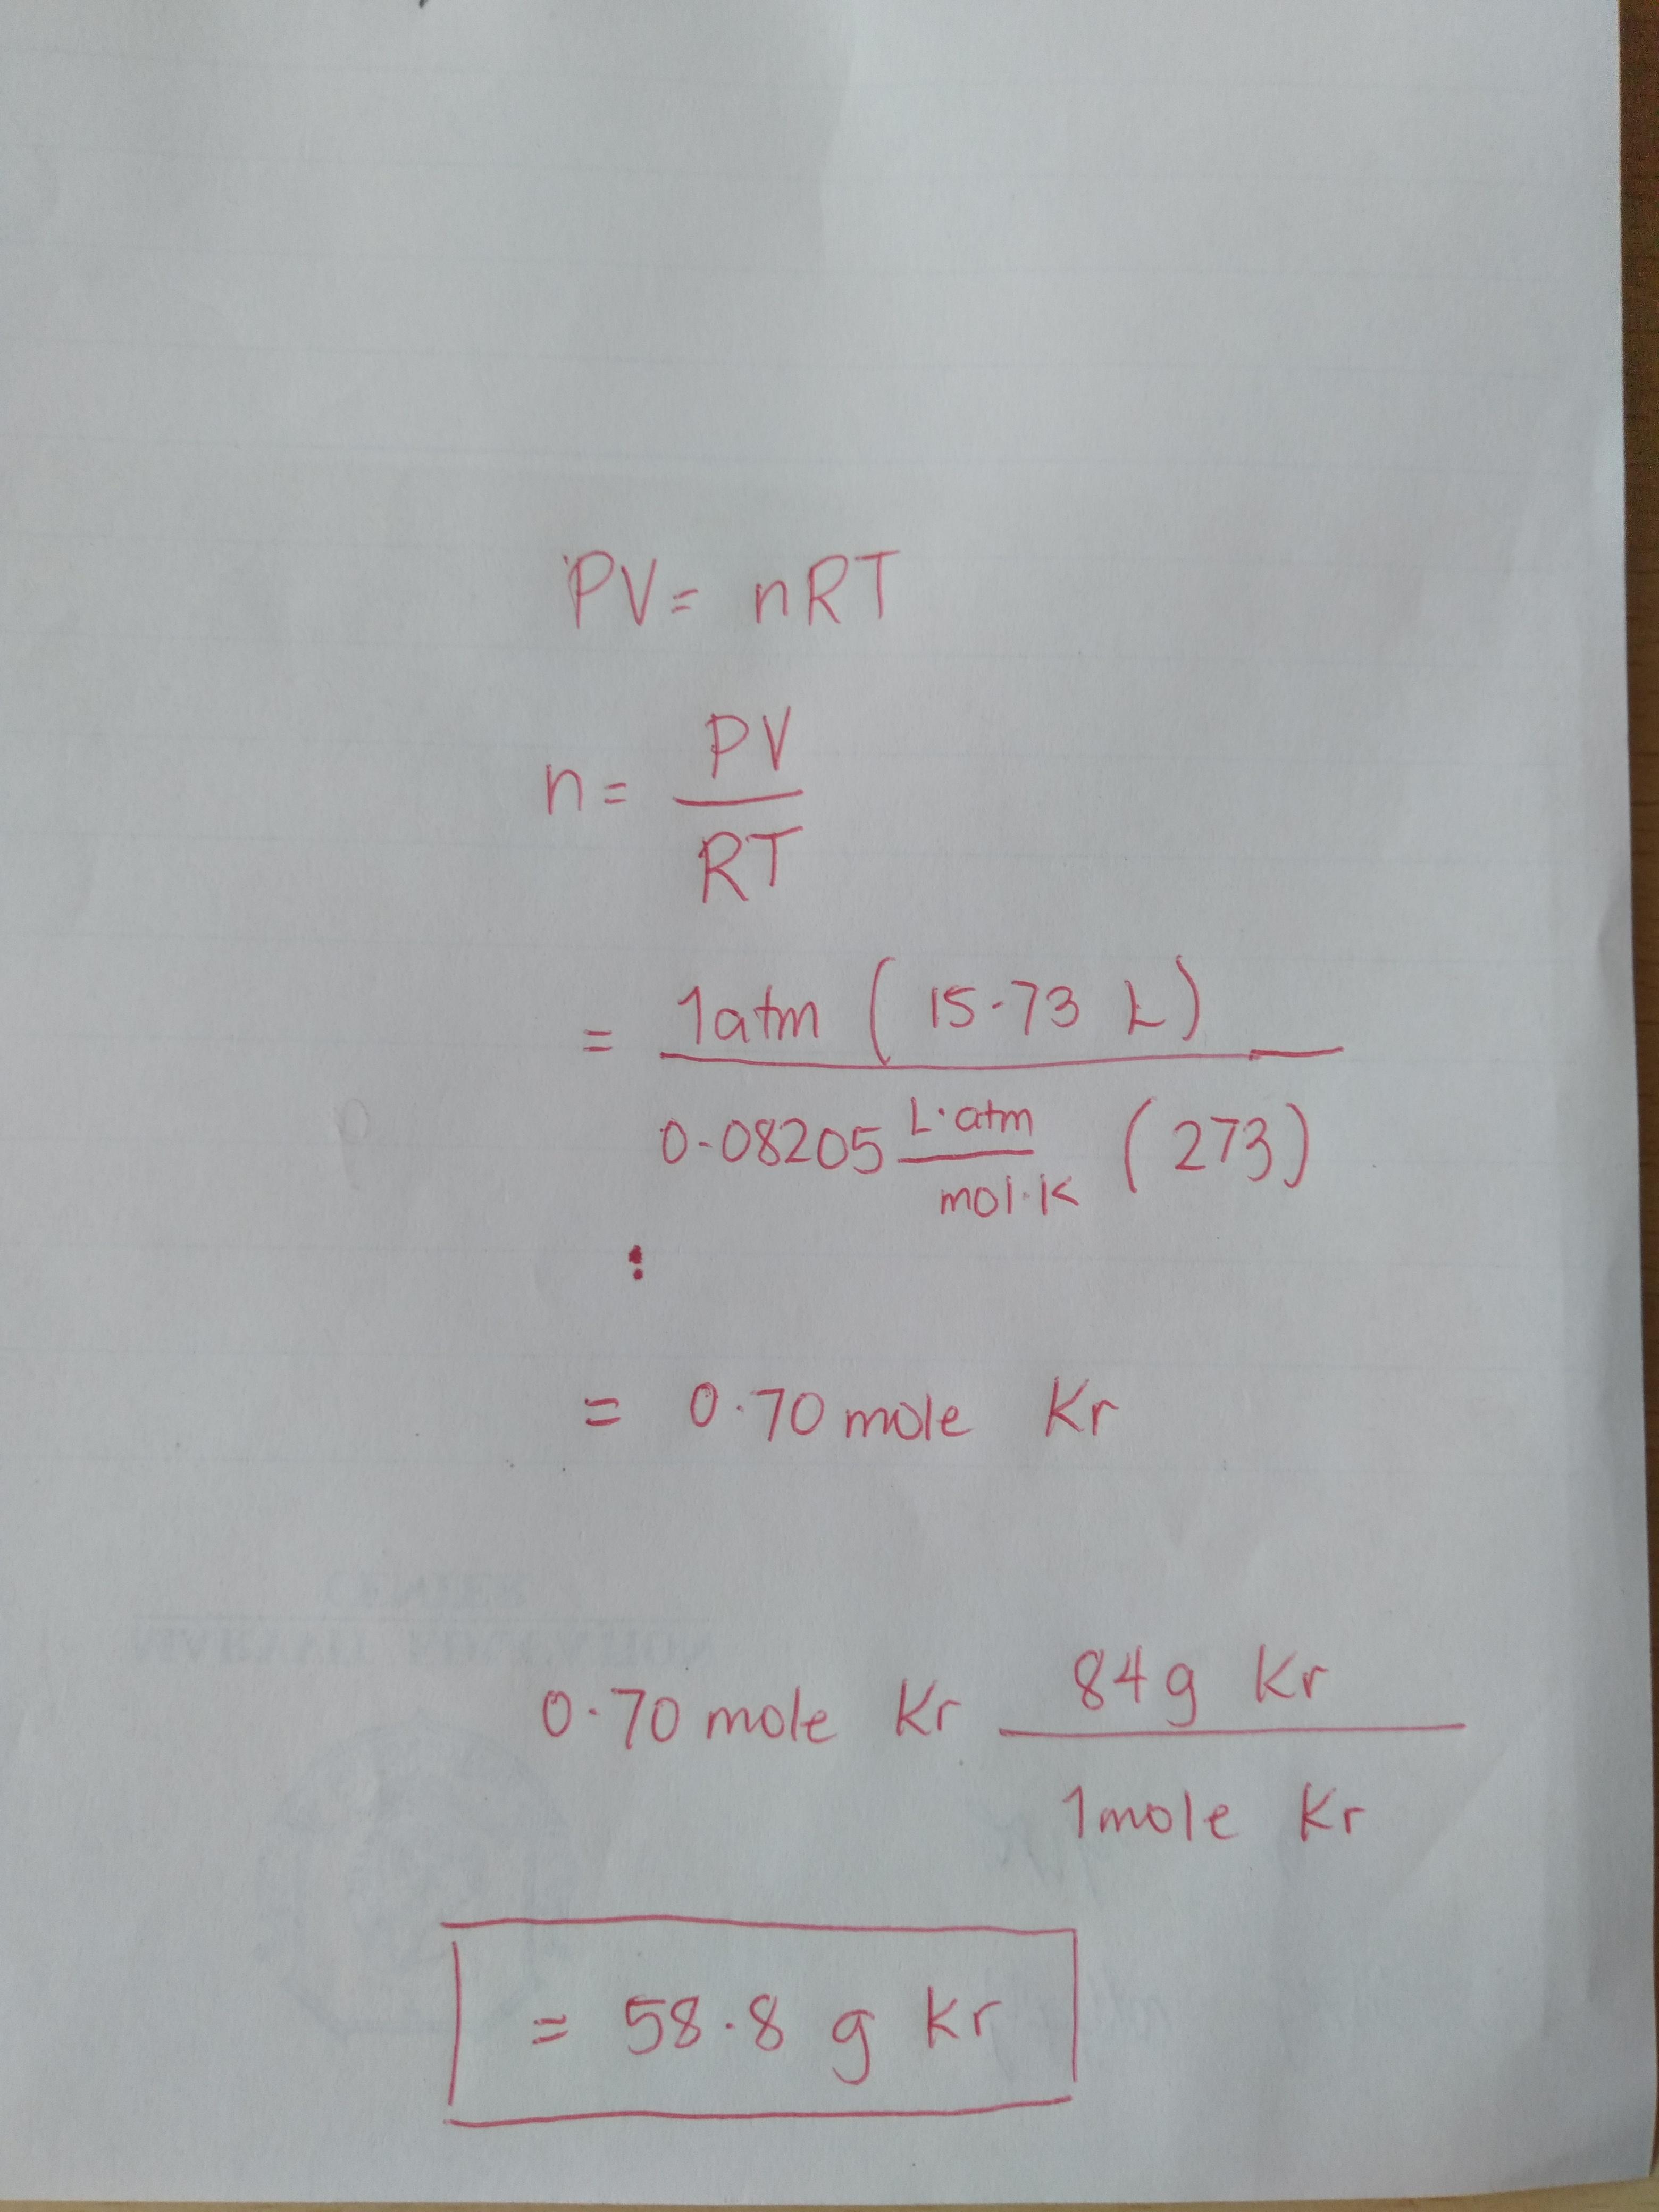 PV = nRT
n = PV
RT
= 1atm ( 15.73 L )
0.08205 L·atm
mol·K ( 273 )
:
= 0.70 mole Kr
0.70 mole Kr 84g Kr
1mole Kr
= 58.8 g Kr